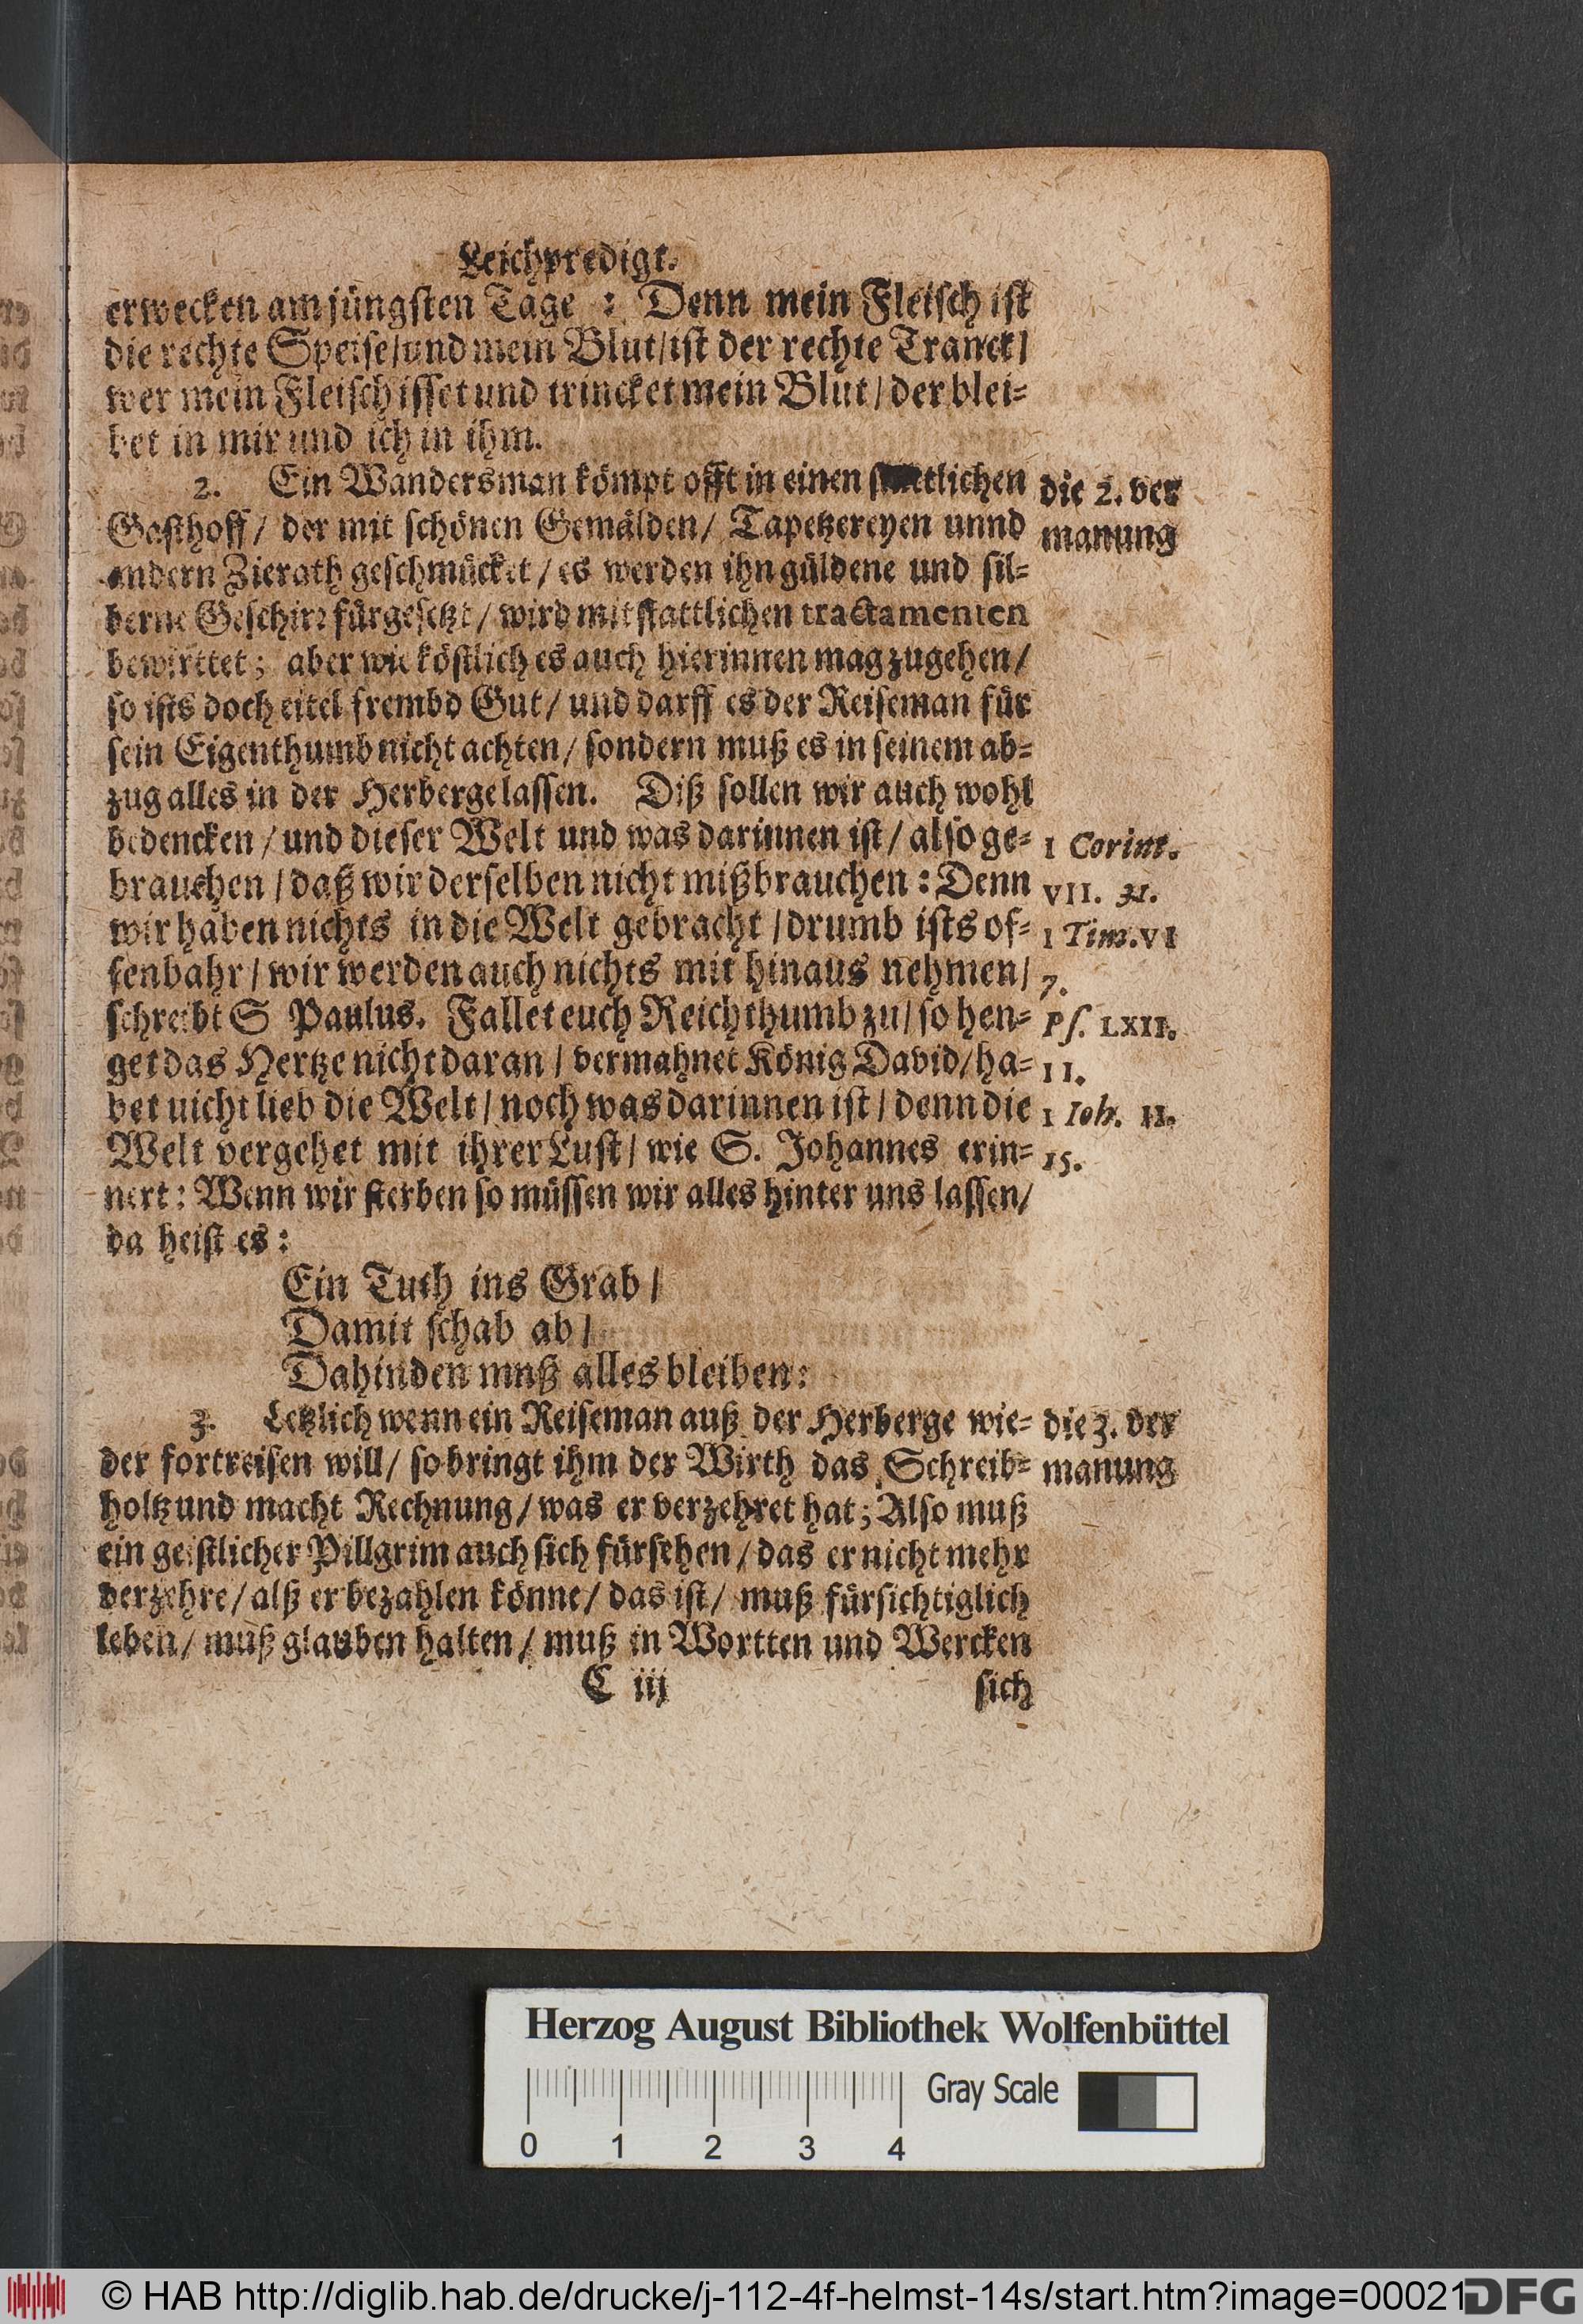 Leichpredigt.
erwecken am jüngsten Tage : Denn mein Fleisch ist
die rechte Speise/und mein Blut/ist der rechte Tranck/
wer mein Fleisch isset und trincket mein Blut / der blei=
bet in mir und ich in ihm.
2. Ein Wandersman kömpt offt in einen
die 2. ver
Gasthoff/ der mit schönen Gemälden/ Tapetzereyen unnd
manung
andern Zierath geschmücket / es werden ihn güldene und sil=
berne Geschirr fürgesetzt / wird mit stattlichen tractamenten
bewirttet; aber wie köstlich es auch hierinnen mag zugehen/
so ists doch eitel frembd Gut/ und darff es der Reiseman für
sein Eigenthumb nicht achten/ sondern muß es in seinem ab=
zug alles in der Herberge lassen. Diß sollen wir auch wohl
bedencken / und dieser Welt und was darinnen ist/ also ge=
1 Corint.
brauchen / daß wir derselben nicht mißbrauchen : Denn
VII. 31.
wir haben nichts in die Welt gebracht /drumb ists of=
1 Tim.VI
fenbahr/ wir werden auch nichts mit hinaus nehmen/
7.
schreibt S Paulus. Fallet euch Reichthumb zu/ so hen=
Ps. LXII.
get das Hertze nicht daran / vermahnet König David/ha=
11.
bet nicht lieb die Welt/ noch was darinnen ist/ denn die
1 Ioh. II.
Welt vergehet mit ihrer Lust/ wie S. Johannes erin=
15.
nert: Wenn wir sterben so müssen wir alles hinter uns lassen/
da heist es :
Ein Tuch ins Grab /
Damit schab ab /
Dahinden muß alles bleiben:
3. Letzlich wenn ein Reiseman auß der Herberge wie=
die 3. ver
der fortreisen will/ so bringt ihm der Wirth das Schreib=
manung
holtz und macht Rechnung/ was er verzehret hat; Also muß
ein geistlicher Pillgrim auch sich fürsehen / das er nicht mehr
verzehre/ alß er bezahlen könne/ das ist/ muß fürsichtiglich
leben/ muß glauben halten / muß in Wortten und Wercken
C iij
sich
Herzog August Bibliothek Wolfenbüttel
Gray Scale
0 1 2 3 4
© HAB http://diglib.hab.de/drucke/j-112-4f-helmst-14s/start.htm?image=00021
DFG